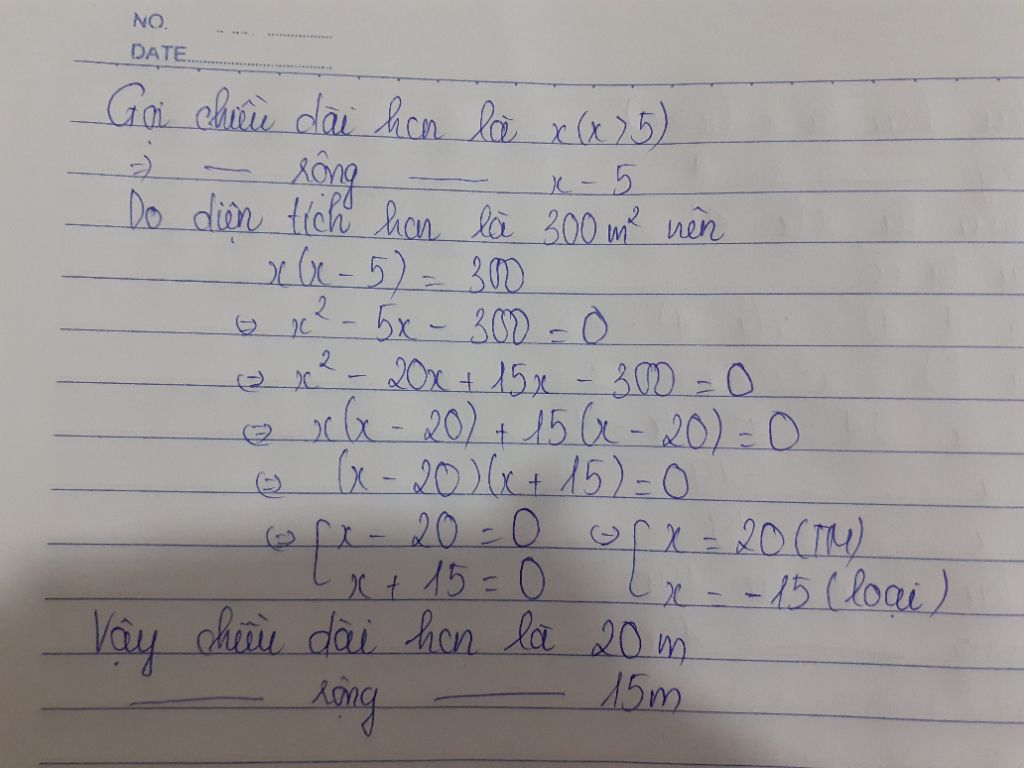 NO.
DATE
Gọi chiều dài hcn là x(x>5)
=> — rộng — x - 5
Do diện tích hcn là 300 m² nên
x(x - 5) = 300
⇔ x² - 5x - 300 = 0
⇔ x² - 20x + 15x - 300 = 0
⇔ x(x - 20) + 15(x - 20) = 0
⇔ (x - 20)(x + 15) = 0
⇔ [x - 20 = 0 ⇔ [x = 20 (TM)
x + 15 = 0 x = -15 (loại)
Vậy chiều dài hcn là 20 m
— rộng — 15m